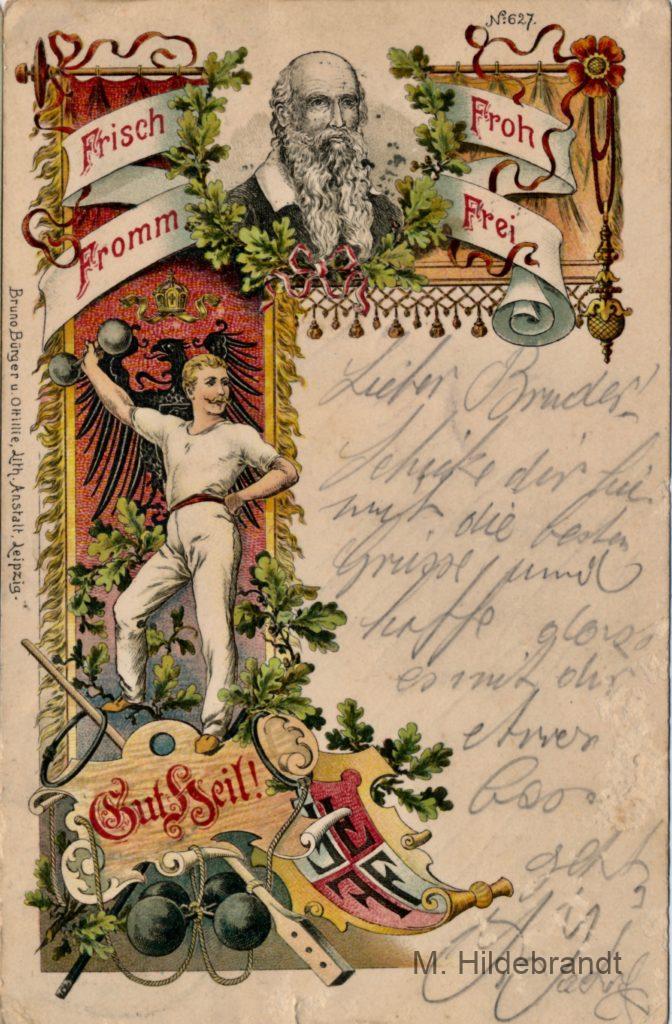 No. 627.
Frisch
Froh
Fromm
Frei
Bruno Bürger u. Ottilie, Lith. Anstalt, Leipzig.
Lieber Bruder!
Schicke dir hie
mit die besten
Grüsse und
hoffe dass
es mit dir
etwas
geht
Gut Heil!
F F F F
M. Hildebrandt